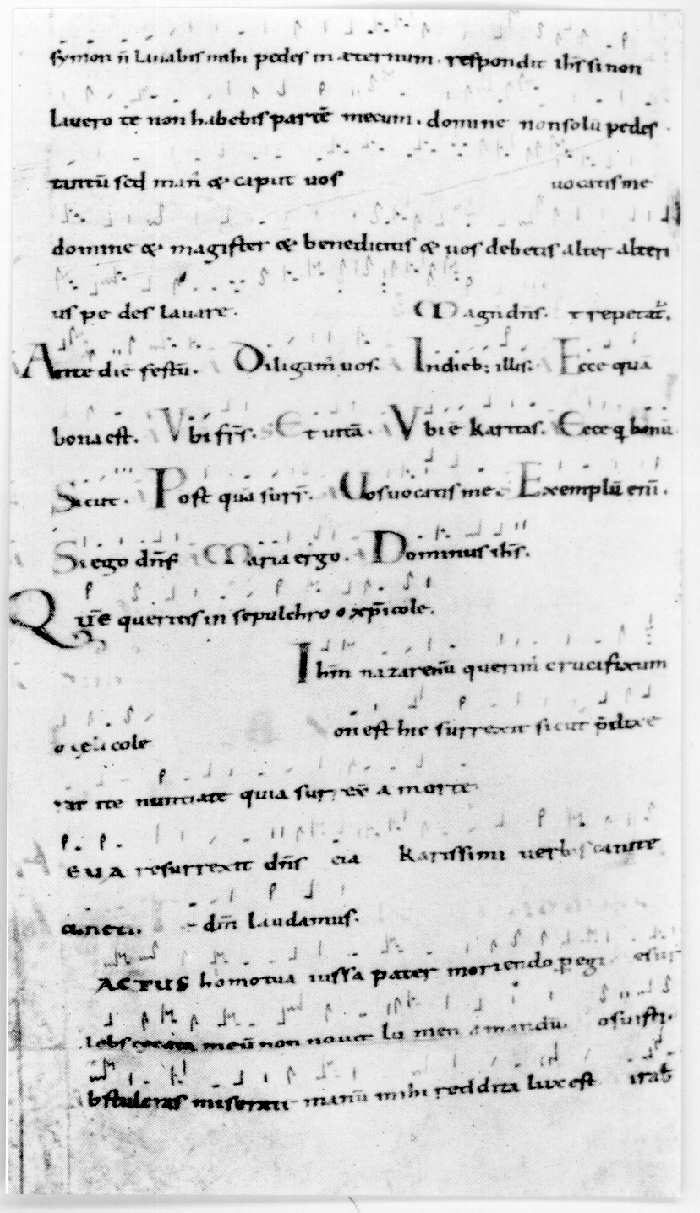 symon n̄ Lauabis mihi pedes in æternum. respondit ih̄s si non
Lauero te non habebis partē mecum. domine non solū pedes
tantū sed man̄ & caput uos uocatis me
domine & magister & benedicitis & uos debetis alter alteri
us pe des lauare. Magn̄ dn̄s. repetat̄.
Ante diē festū. Diligam̄ uos. In dieb; illis. Ecce quā
bona est. Vbi fr̄s. Et uitā. Vbi ē karitas. Ecce q̄ bonū
Sicut. Post quā surr̄. Uos uocatis me. Exemplū enī.
Si ego dn̄s Maria ergo. Dominus ih̄s.
Quē queritis in sepulchro o xp̄icole.
Ih̄m nazarenū querim̄ crucifixum
o cole on est hic surrexit sicut p̄dixe
rat ite nuntiate quia surrex̄ a morte
EUA resurrexit dn̄s eia Karissimi uerbis canite
cuncti. dm̄ laudamus.
ACTUS homo tua iussa pater moriendo pegi
meū non nouit lu men amandū. osuisti.
bstuleras miserati manū mihi reddita lux est irab